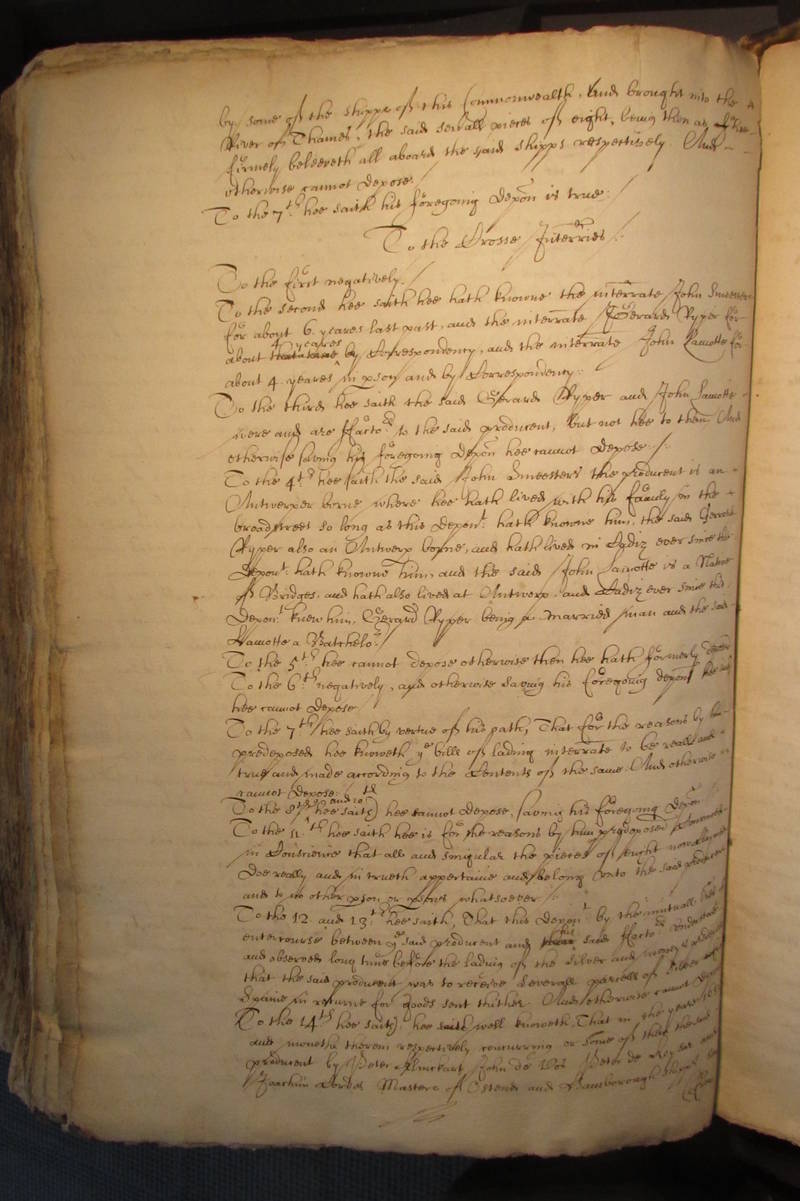 by some of the shipps of this Commonwealth, And brought into the
River of Thames, the said severall pieces of eight, being then as
firmely beleeveth all aboard the said shipps respectively. And
otherwise cannot depose.
To the 7th. hee saith his foregoing depon is true.
To the Crosse Interries
To the first negatively.
To the second hee saith hee hath knowne the interrate John Smeesters
for about 6 yeares last past, and the interrate Gerard Ryper for
about 4 yeares by Correspondency, and the interrate John Lamotte for
about 4 yeares in pson and by Correspondency.
To the third hee saith the said Gerard Ryper and John Lamotte
were and are Factors to the said producent, but not hee to them And
otherwise saving his foregoing depon hee cannot depose.
To the 4th hee saith the said John Smeesters the producent is an
Antwerper borne where hee hath lived with his family in the
broadstreet so long as this depont. hath knowne him, the said Gerard
Ryper also an Antwerp borne, and hath lived in Cadiz ever since this
Depont. hath knowne him, and the said John Lamotte is a Native
of Bridges, and hath also lived at Antwerp and Cadiz ever since this
Deponent knew him, Gerard Ryper being a married man and the said
Lamotte a Batchelor.
To the 5th hee cannot depose otherwise then hee hath formerly
To the 6th negatively, and otherwise saving his foregoing depon
hee cannot depose
To the 7th hee saith by vertue of his oath, That for the reasons by him
predeposed hee knoweth ye bills of lading interrate to be reall and
true and made according to the Contents of the same. And otherwise
cannot depose.
To the 8th 9 and 10th hee saith hee cannot depose, saving his foregoing depon
To the 11th hee saith hee is for the reasons by him predeposed
in Conscience that all and singular the pieces of eight
doe really and in trueth appertaine and belong unto the said producent
and to no other pson or psons whatsoever.
To the 12 and 13th hee saith, That this Deponent by the mutuall
entercourse betweene ye said producent and his said Factors
and observed long time before the lading of the silver and moneys
that the said producent was to receive severall parcells of silver
Spaine in returne for goods sent thither. And otherwise cannot
To the 14th hee saith, hee well knoweth, That in the yeare
and moneths therein respectively concurring or some of them the said
producent by Peter John de Vos Peter de
Joachim Masters of Ostend and Hamborough shipps